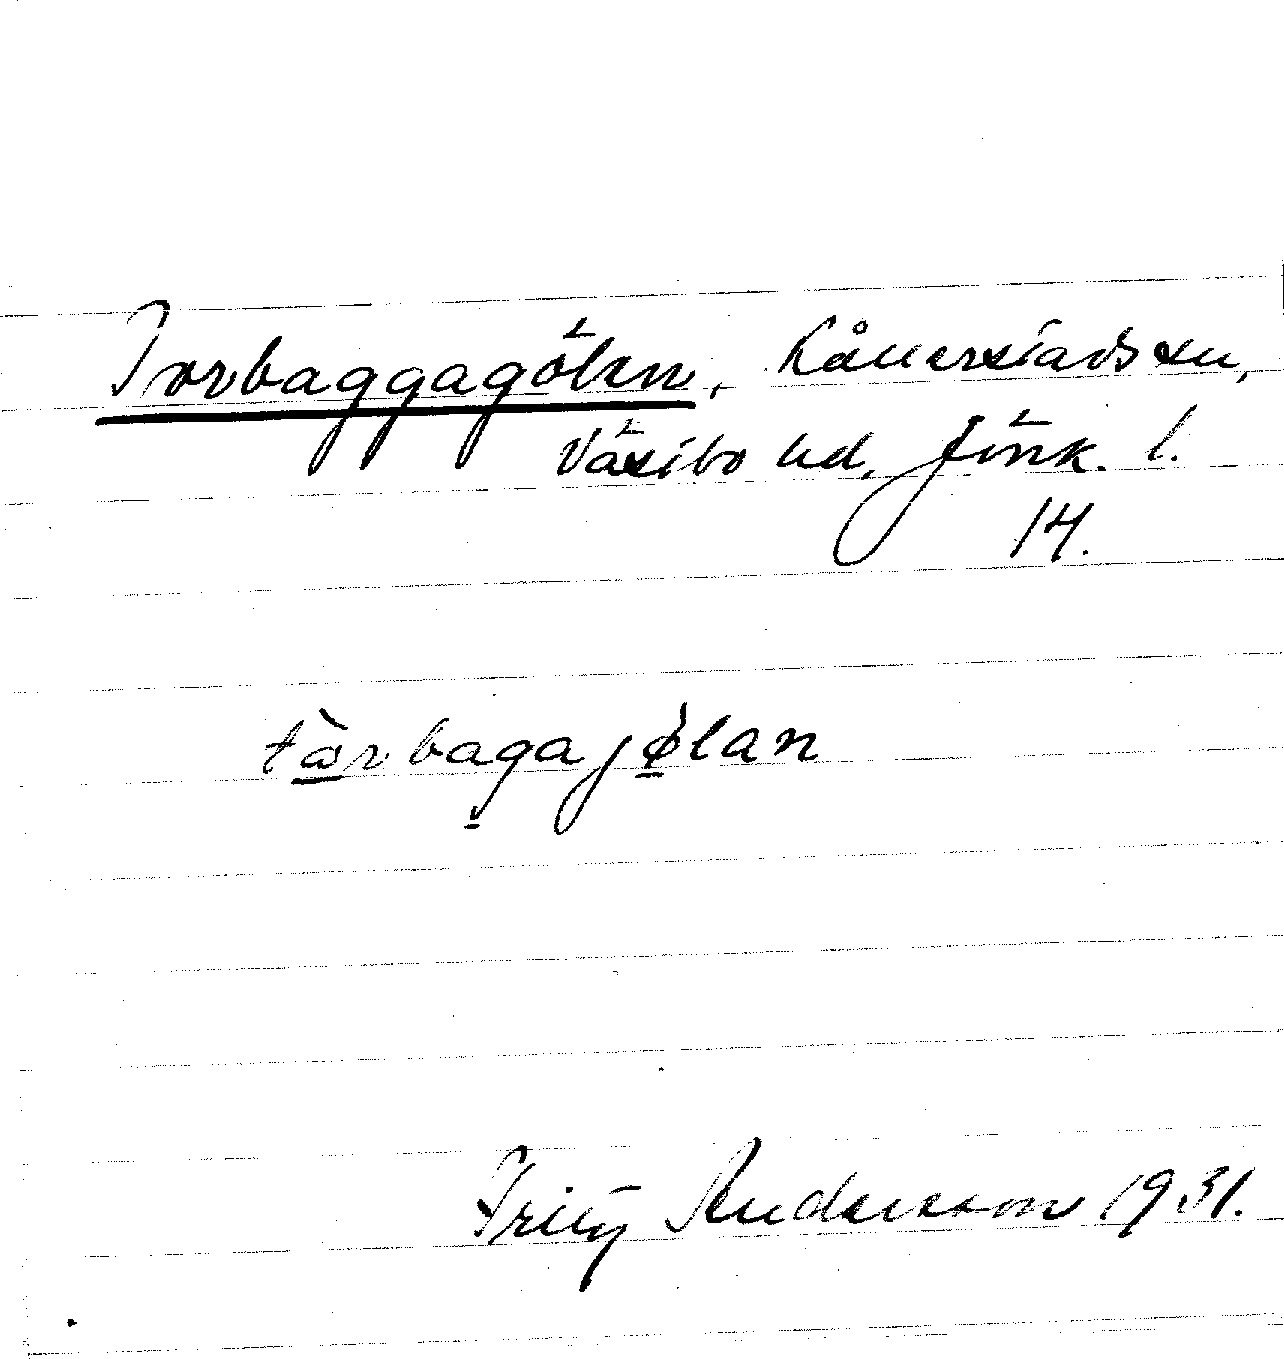 Torbaggagölen, Kållerstads sn,
Västbo hd, Jönk. l.
14.
tɷ̀rbagajø̀lan
Fritz Andersson 1931.